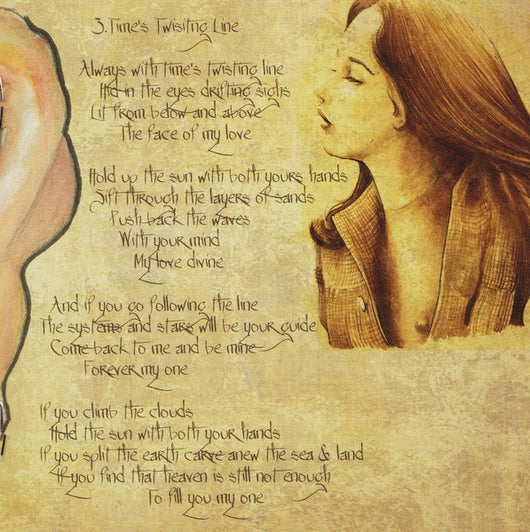 3. Time's Twisitng Line
Always with time's twisting line
Hid in the eyes drifting sighs
Lit from below and above
The face of my love
Hold up the sun with both yours hands
Sift through the layers of sands
Push back the waves
With your mind
My love divine
And if you go following the line
The systems and stars will be your guide
Come back to me and be mine
Forever my one
If you climb the clouds
Hold the sun with both your hands
If you split the earth carve anew the sea & land
If you find that heaven is still not enough
To fill you my one